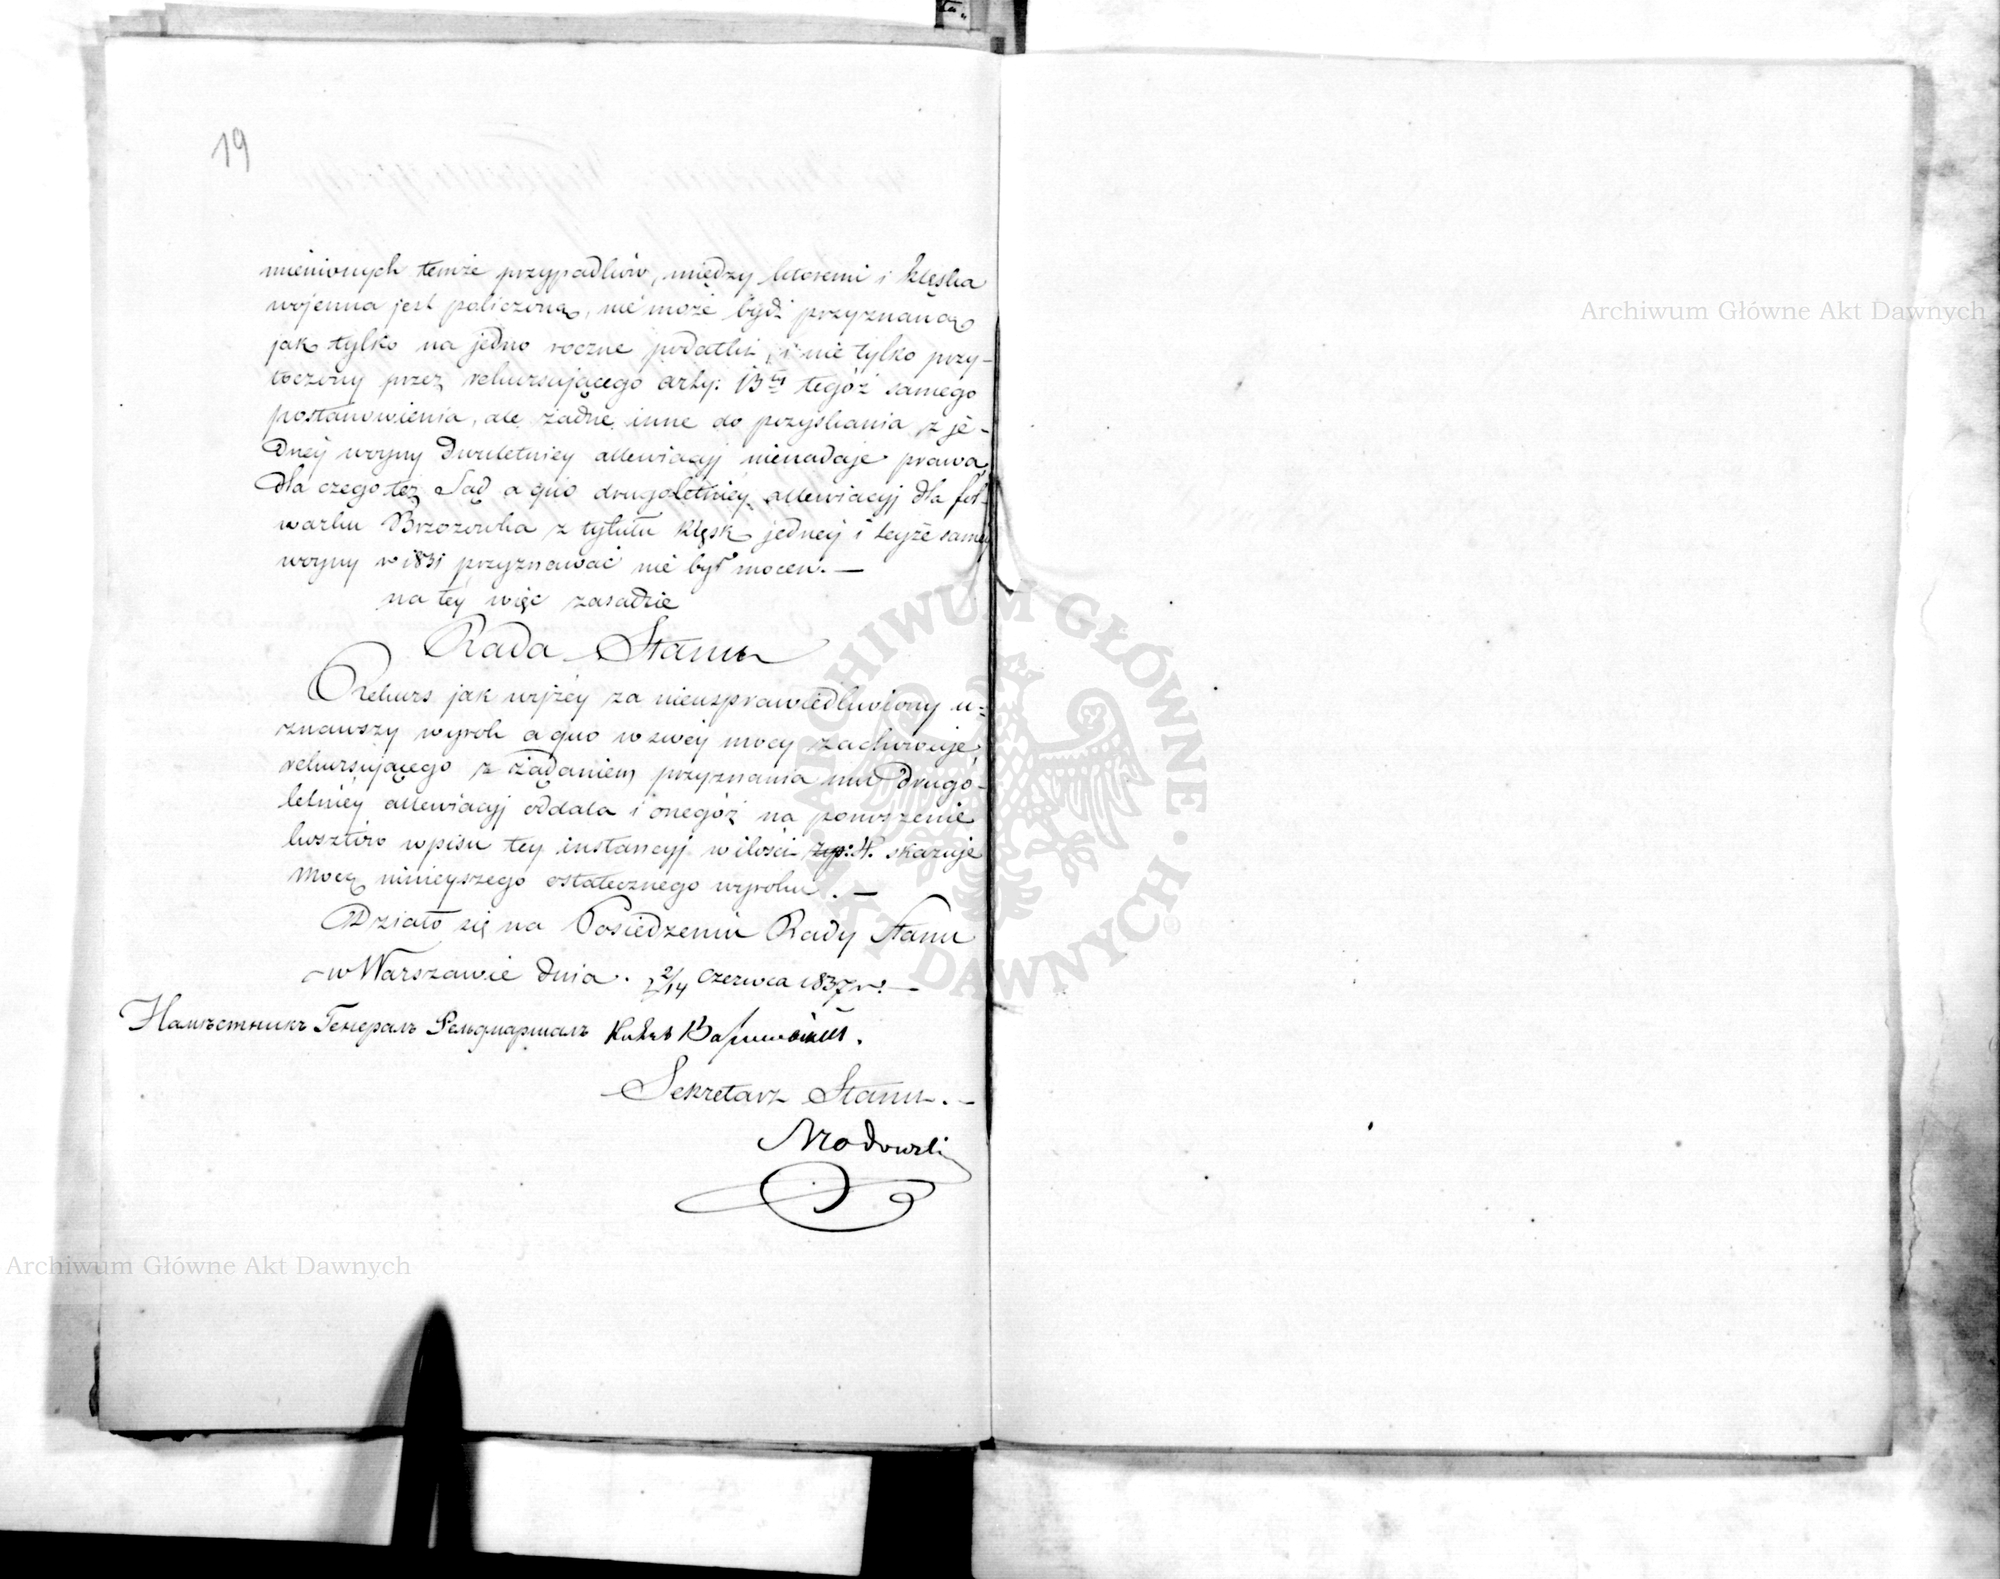 19
mienionych temże przypadków, między ktoremi i klęska
wojenna jest policzoną, nie może bydź przyznaną
jak tylko na jedno roczne podatki, i nie tylko przy-
toczony przez rekursującego arty: 13ty tegóż samego
postanowienia, ale żadne inne do pozyskania z je-
dnéy woyny dwuletniey allewiacyj nienadaje prawa,
dla czego też Sąd a quo drugoletniéy allewiacyj dla fol-
warku Brzozowka z tytułu klęsk jednéy i teyże saméy
woyny w 1831 przyznawać nie był mocen. —
na téy więc zasadzie
Rada Stanu
Rekurs jak wyżéy za nieusprawiedliwiony u-
znawszy wyrok a quo w swéy mocy zachowuje
rekursującego z żądaniem przyznania mu drugo-
letniéy allewiacyj oddala i onegóż na ponoszenie
kosztów wpisu téy instancyj w ilości złp: 4. skazuje
mocą ninieyszego ostatecznego wyroku. —
Działo się na Posiedzeniu Rady Stanu
w Warszawie dnia 2/14 Czerwca 1837 r. —
Намѣстникъ Генералъ Фельдмаршалъ Князь Варшавскій.
Sekretarz Stanu. —
Archiwum Główne Akt Dawnych
Archiwum Główne Akt Dawnych
ARCHIWUM GŁÓWNE · AKT DAWNYCH ·